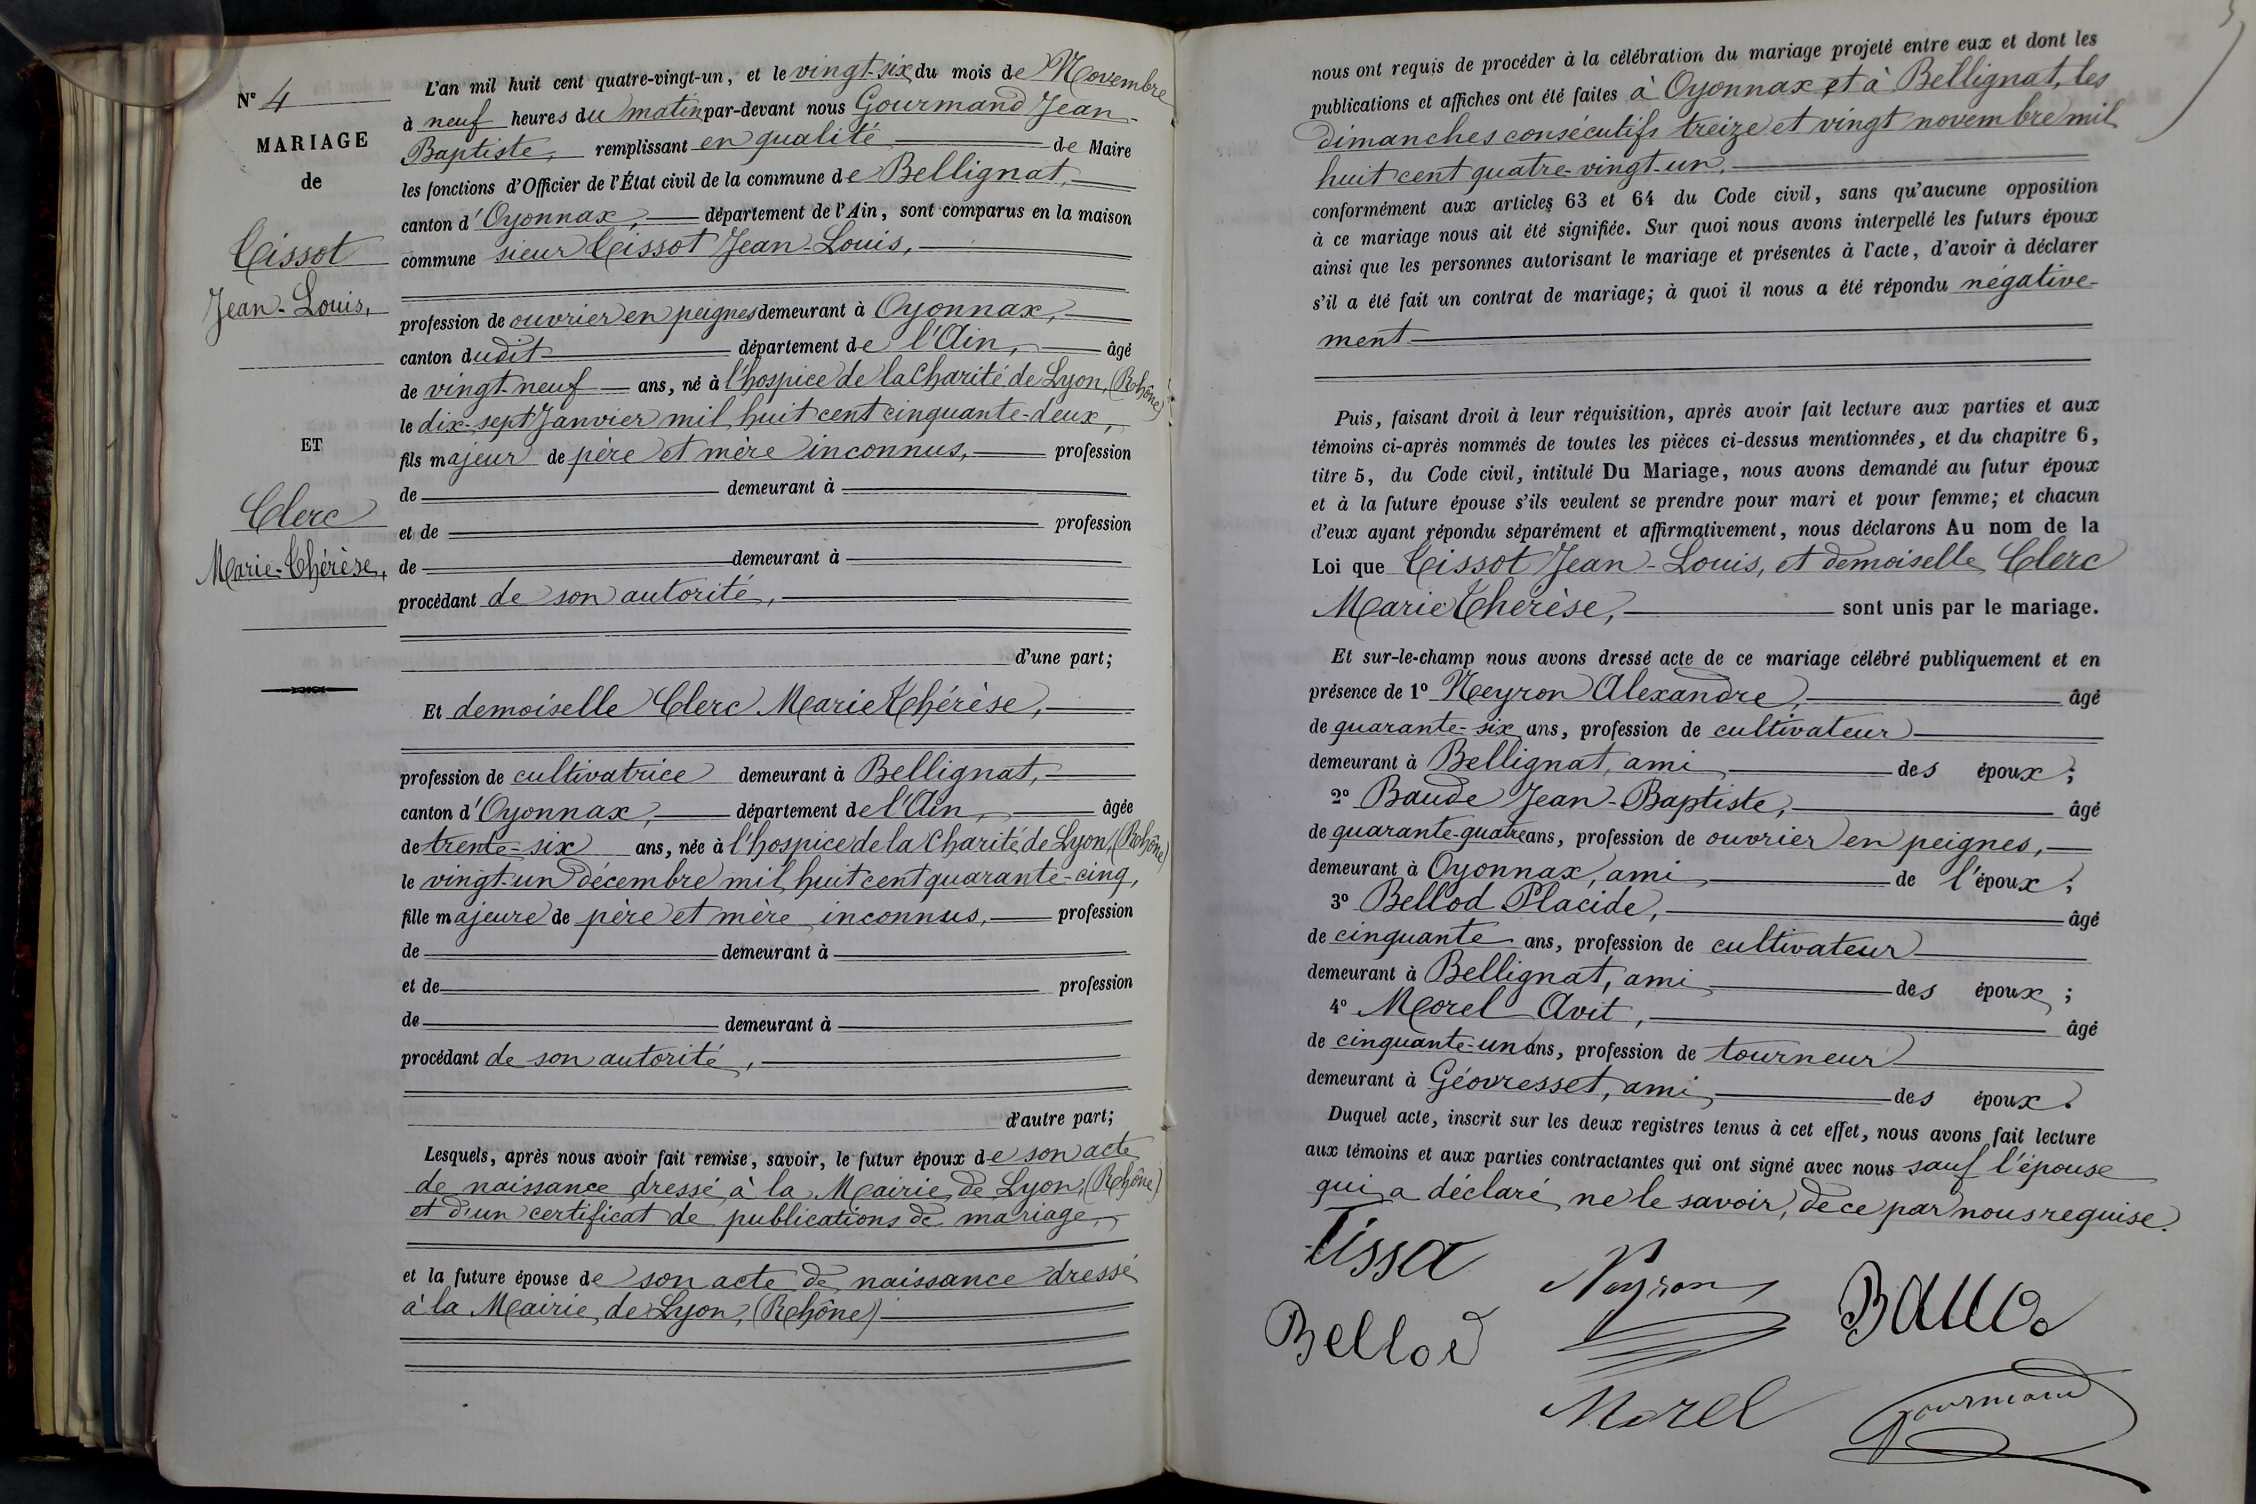 N° 4
MARIAGE
de
Tissot
Jean-Louis,
ET
Clerc
Marie-Thérèse,
L'an mil huit cent quatre-vingt-un, et le vingt-six du mois de Novembre
à neuf heures du matin par-devant nous Gourmand Jean-
Baptiste, remplissant en qualité de Maire
les fonctions d'Officier de l'État civil de la commune de Bellignat,
canton d'Oyonnax, département de l'Ain, sont comparus en la maison
commune sieur Tissot Jean-Louis,
profession de ouvrier en peignes demeurant à Oyonnax,
canton dudit département de l'Ain, âgé
de vingt-neuf ans, né à l'hospice de la Charité de Lyon, (Rhône)
le dix-sept Janvier mil huit cent cinquante-deux,
fils majeur de père et mère inconnus, profession
de demeurant à
et de profession
de demeurant à
procédant de son autorité,
d'une part;
Et demoiselle Clerc Marie Thérèse,
profession de cultivatrice demeurant à Bellignat,
canton d'Oyonnax, département de l'Ain, âgée
de trente-six ans, née à l'hospice de la Charité de Lyon, (Rhône)
le vingt-un décembre mil huit cent quarante-cinq,
fille majeure de père et mère inconnus, profession
de demeurant à
et de profession
de demeurant à
procédant de son autorité,
d'autre part;
Lesquels, après nous avoir fait remise, savoir, le futur époux de son acte
de naissance dressé à la Mairie de Lyon, (Rhône)
et d'un certificat de publications de mariage,
et la future épouse de son acte de naissance dressé
à la Mairie de Lyon, (Rhône)
nous ont requis de procéder à la célébration du mariage projeté entre eux et dont les
publications et affiches ont été faites à Oyonnax et à Bellignat, les
dimanches consécutifs treize et vingt novembre mil
huit cent quatre-vingt-un,
conformément aux articles 63 et 64 du Code civil, sans qu'aucune opposition
à ce mariage nous ait été signifiée. Sur quoi nous avons interpellé les futurs époux
ainsi que les personnes autorisant le mariage et présentes à l'acte, d'avoir à déclarer
s'il a été fait un contrat de mariage; à quoi il nous a été répondu négative-
ment
Puis, faisant droit à leur réquisition, après avoir fait lecture aux parties et aux
témoins ci-après nommés de toutes les pièces ci-dessus mentionnées, et du chapitre 6,
titre 5, du Code civil, intitulé Du Mariage, nous avons demandé au futur époux
et à la future épouse s'ils veulent se prendre pour mari et pour femme; et chacun
d'eux ayant répondu séparément et affirmativement, nous déclarons Au nom de la
Loi que Tissot Jean-Louis, et demoiselle Clerc
Marie Therèse, sont unis par le mariage.
Et sur-le-champ nous avons dressé acte de ce mariage célébré publiquement et en
présence de 1° Neyron Alexandre, âgé
de quarante-six ans, profession de cultivateur
demeurant à Bellignat, ami des époux;
2° Baude Jean-Baptiste, âgé
de quarante-quatre ans, profession de ouvrier en peignes,
demeurant à Oyonnax, ami de l'époux;
3° Bellod Placide, âgé
de cinquante ans, profession de cultivateur
demeurant à Bellignat, ami des époux;
4° Morel Avit, âgé
de cinquante-un ans, profession de tourneur
demeurant à Géovresset, ami des époux.
Duquel acte, inscrit sur les deux registres tenus à cet effet, nous avons fait lecture
aux témoins et aux parties contractantes qui ont signé avec nous sauf l'épouse
qui a déclaré ne le savoir, de ce par nous requise.
Tissot Neyron Baude
Bellod Morel Gourmand